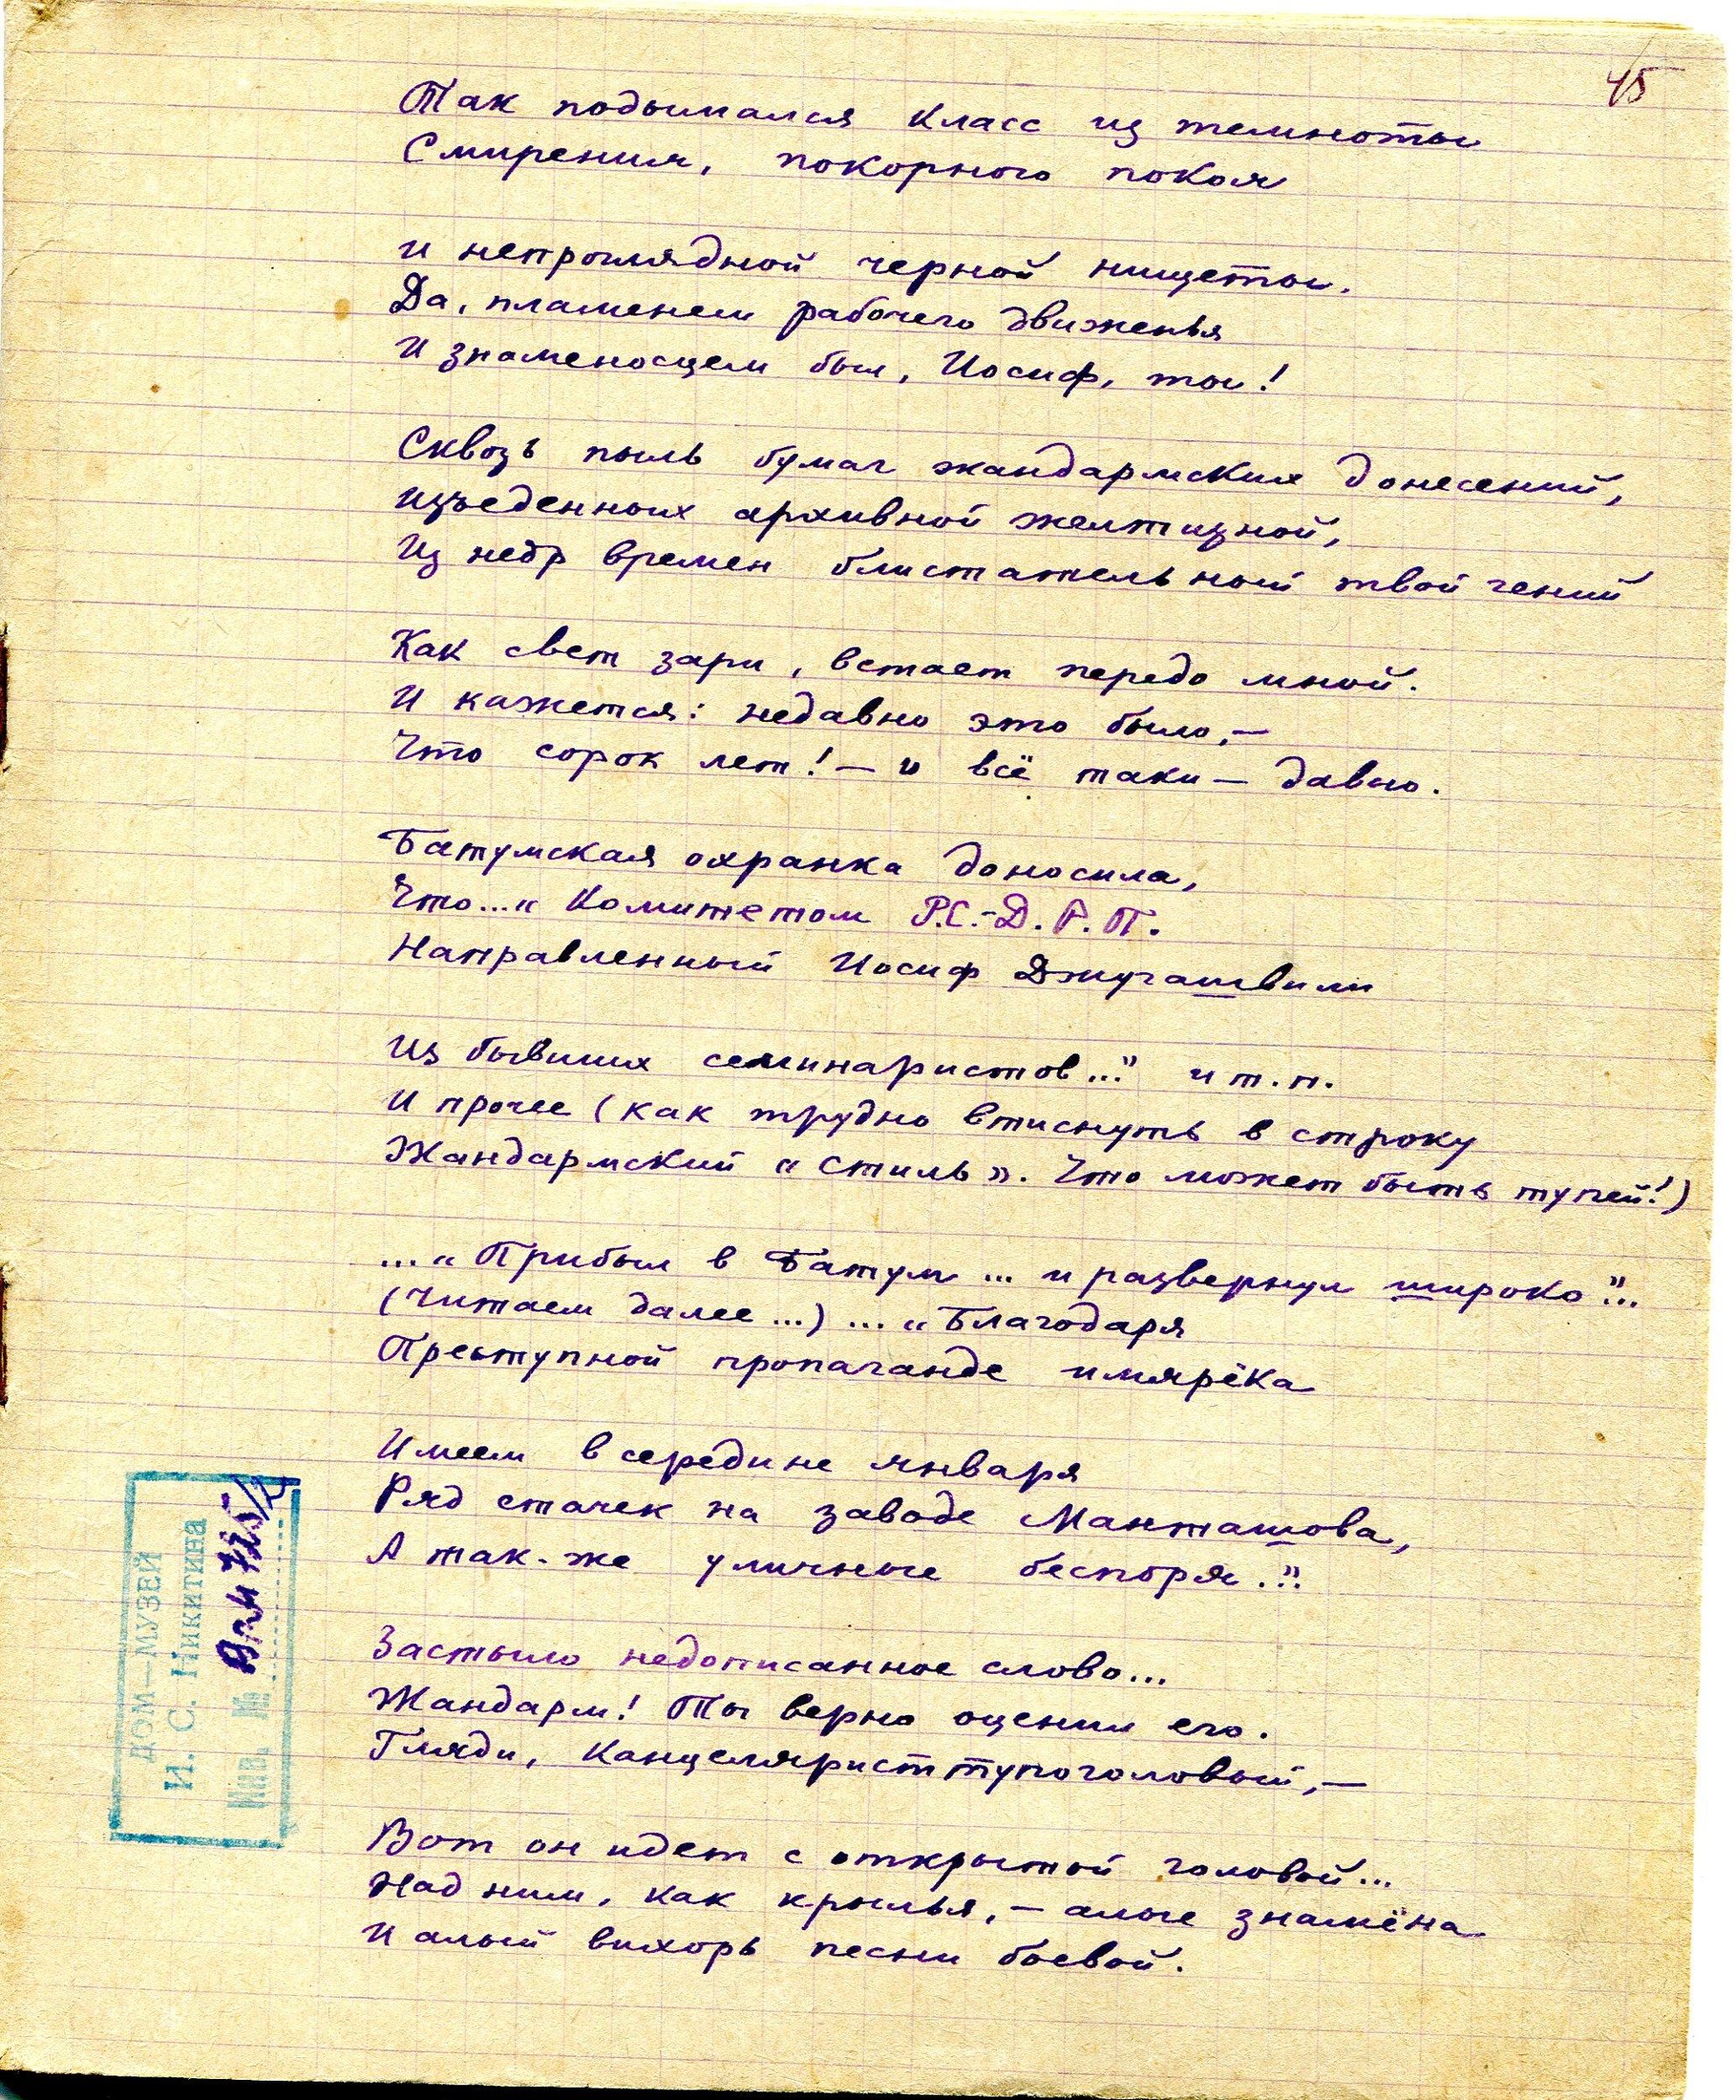 45
Так подымался класс из темноты
Смирения, покорного покоя
и непроглядной черной нищеты.
Да, пламенем рабочего движенья
И знаменосцем был, Иосиф, ты!
Сквозь пыль бумаг жандармских донесений,
Изъеденных архивной желтизной,
Из недр времен блистательный твой гений
Как свет зари, встает передо мной.
И кажется: недавно это было,—
Что сорок лет! — и всё таки — давно.
Батумская охранка доносила,
Что... „Комитетом Р.С.-Д.Р.П.
Направленный Иосиф Джугашвили
Из бывших семинаристов..." и т.п.
И прочее (как трудно втиснуть в строку
Жандармский «стиль». Что может быть тупей!)
... „Прибыл в Батум ... и развернул широко"...
(Читаем далее...) ... „Благодаря
Преступной пропаганде имярека
Имеем в середине января
Ряд стачек на заводе Манташова,
А так-же уличные беспоря..."
Застыло недописанное слово...
Жандарм! Ты верно оценил его.
Гляди, канцелярист тупоголовый,—
Вот он идет с открытой головой...
Над ним, как крылья, — алые знамёна
И алый вихорь песни боевой.
ДОМ—МУЗЕЙ
И. С. Никитина
Инв. №